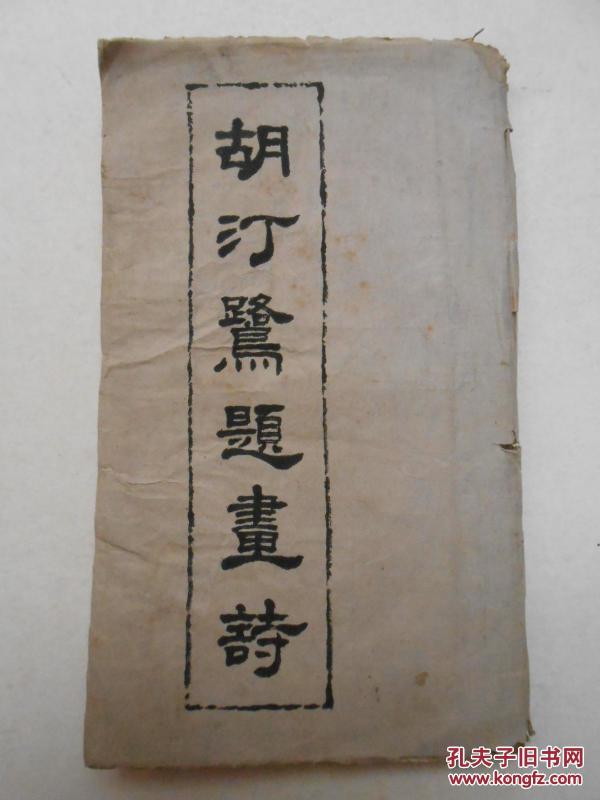 胡汀鷺題畫詩
孔夫子旧书网
www.kongfz.com